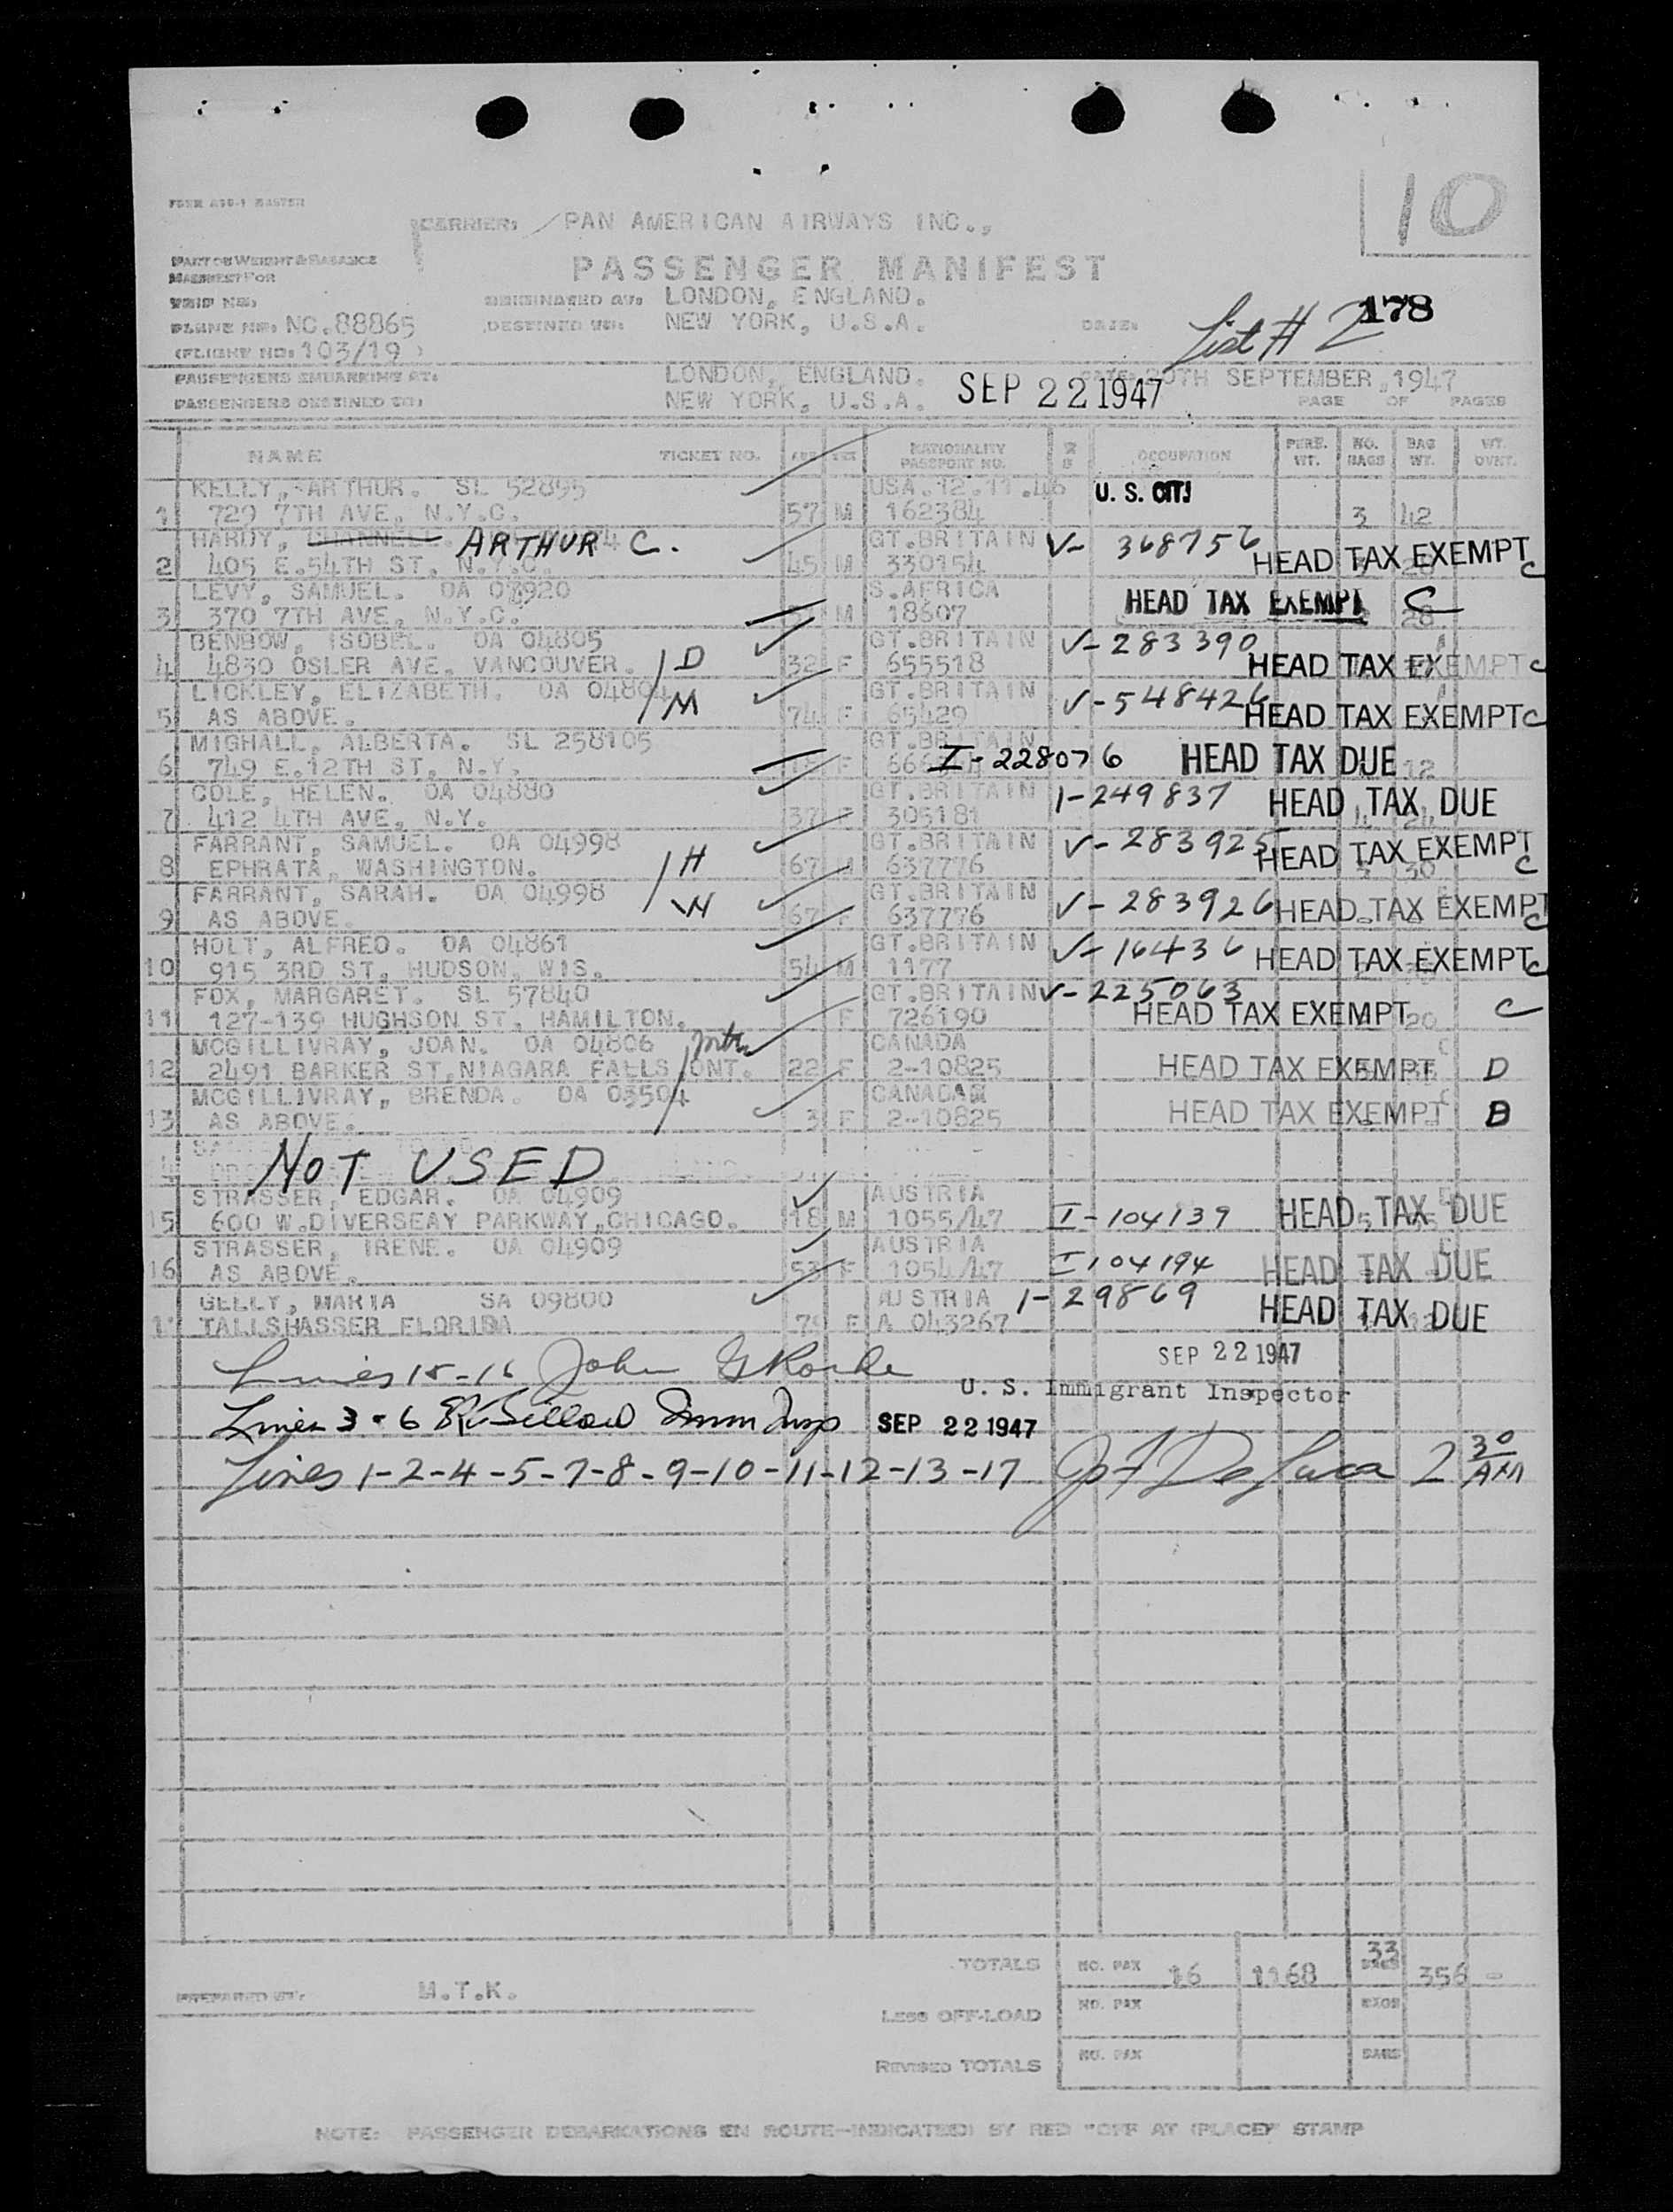 10
CARRIER: PAN AMERICAN AIRWAYS INC.,
PART OF WEIGHT & BALANCE
MANIFEST FOR
PASSENGER MANIFEST
TRIP NO:
ORIGINATED AT: LONDON, ENGLAND.
PLANE NO: NC.88865
DESTINED TO: NEW YORK, U.S.A.
DATE:
List # 2
178
(FLIGHT NO: 103/19 )
PASSENGERS EMBARKING AT: LONDON, ENGLAND. SEP 22 1947 DATE: 20TH SEPTEMBER, 1947
PASSENGERS DESTINED TO: NEW YORK, U.S.A. PAGE OF PAGES
NAME TICKET NO. AGE SEX NATIONALITY PASSPORT NO. OCCUPATION PERS. WT. NO. BAGS BAG WT. WT. OVRT.
KELLY, ARTHUR. SL 52895 USA.12.11.46 U. S. CIT.
1 729 7TH AVE, N.Y.C. 57 M 162384 3 42
HARDY, CHANNELL. ARTHUR C. GT.BRITAIN V- 368756 HEAD TAX EXEMPT C
2 405 E.54TH ST, N.Y.C. 45 M 330154
LEVY, SAMUEL. OA 03920 S.AFRICA HEAD TAX EXEMPT C
3 370 7TH AVE, N.Y.C. M 18607 28
BENBOW, ISOBEL. OA 04805 GT.BRITAIN V-283390
4 4830 OSLER AVE, VANCOUVER. D 32 F 655518 HEAD TAX EXEMPT C
LICKLEY, ELIZABETH. OA 04804 GT.BRITAIN V-548426
5 AS ABOVE. M 74 F 65429 HEAD TAX EXEMPT C
MIGHALL, ALBERTA. SL 258105 GT.BRITAIN
6 749 E.12TH ST, N.Y. F I-228076 HEAD TAX DUE 12
COLE, HELEN. OA 04880 GT.BRITAIN 1-249837 HEAD TAX DUE
7 412 4TH AVE, N.Y. 37 F 305181
FARRANT, SAMUEL. OA 04998 GT.BRITAIN V-283925 HEAD TAX EXEMPT C
8 EPHRATA, WASHINGTON. H 67 M 637776 30
FARRANT, SARAH. OA 04998 GT.BRITAIN V-283926 HEAD TAX EXEMPT C
9 AS ABOVE. W 67 F 637776
HOLT, ALFRED. OA 04861 GT.BRITAIN V-16436 HEAD TAX EXEMPT C
10 915 3RD ST, HUDSON, WIS. 54 M 1177
FOX, MARGARET. SL 57840 GT.BRITAIN V-225063
11 127-139 HUGHSON ST, HAMILTON. F 726190 HEAD TAX EXEMPT 20 C
MCGILLIVRAY, JOAN. OA 04806 CANADA
12 2491 BARKER ST,NIAGARA FALLS,ONT. 22 F 2-10825 HEAD TAX EXEMPT D
MCGILLIVRAY, BRENDA. OA 03504 CANADA
13 AS ABOVE. 3 F 2-10825 HEAD TAX EXEMPT B
NOT USED
STRASSER, EDGAR. OA 04909 AUSTRIA
15 600 W.DIVERSEAY PARKWAY,CHICAGO. 18 M 1055/47 I-104139 HEAD TAX DUE
STRASSER, IRENE. OA 04909 AUSTRIA
16 AS ABOVE. 53 F 1054/47 I104194 HEAD TAX DUE
GELLY, MARIA SA 09800 AUSTRIA 1-29869
TALLSHASSER FLORIDA F A 043267 HEAD TAX DUE
Lines 15-16 John G SEP 22 1947
U. S. Immigrant Inspector
Lines 3-6 Imm Insp SEP 22 1947
Lines 1-2-4-5-7-8-9-10-11-12-13-17 J F DeLuca 2 30 AM
TOTALS NO. PAX 16 1168 33 BAGS 356 -
PREPARED BY: M.T.K.
LESS OFF-LOAD NO. PAX
REVISED TOTALS NO. PAX BAGS
NOTE: PASSENGER DEBARKATIONS EN ROUTE-INDICATED BY RED "OFF AT (PLACE)" STAMP